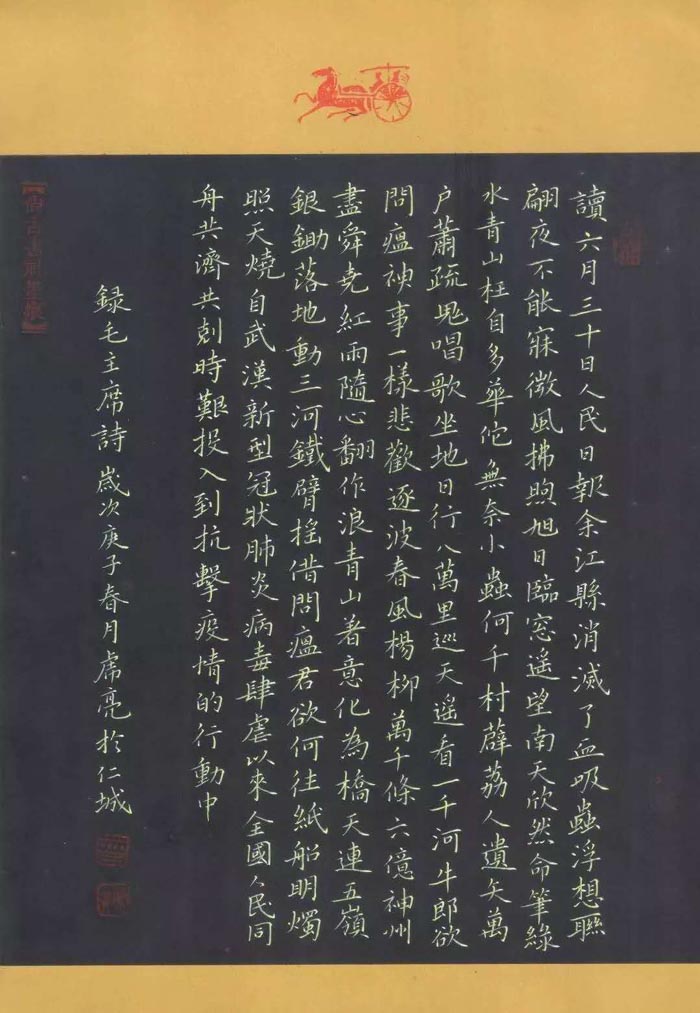 讀六月三十日人民日報余江縣消滅了血吸蟲浮想聯
翩夜不能寐微風拂煦旭日臨窓遥望南天欣然命筆綠
水青山枉自多華佗無奈小蟲何千村薜荔人遺矢萬
户蕭疏鬼唱歌坐地日行八萬里巡天遥看一千河牛郎欲
問瘟神事一樣悲歡逐波春風楊柳萬千條六億神州
盡舜堯紅雨隨心翻作浪青山著意化為橋天連五嶺
銀鋤落地動三河鐵臂摇借問瘟君欲何往紙船明燭
照天燒自武漢新型冠狀肺炎病毒肆虐以來全國人民同
舟共濟共剋時艱投入到抗擊疫情的行動中
録毛主席詩歲次庚子春月亮於仁城